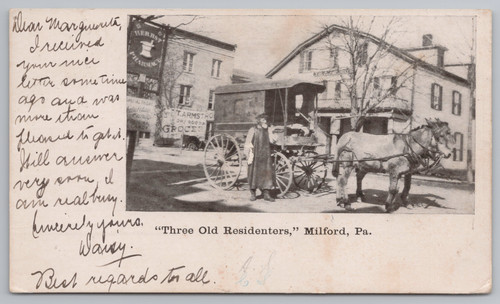 Dear Marguerita,
I received
your nice
letter sometime
ago and was
more than
pleased to get it.
Will answer
very soon, I
am real busy.
Sincerely yours,
Daisy.
Best regards to all.
"Three Old Residenters," Milford, Pa.